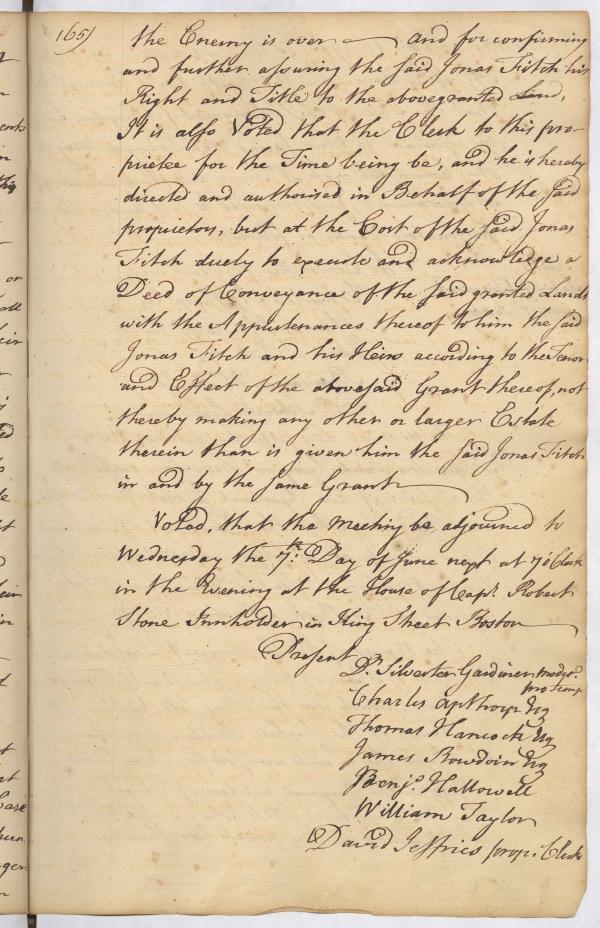 165)
the Enemy is over — and for confirming
and further assuring the said Jonas Fitch his
Right and Title to the abovegranted Land,
It is also Voted that the Clerk to this pro-
prietee for the Time being be, and he is hereby
directed and authorised in Behalf of the said
proprietors, but at the Cost of the said Jonas
Fitch duely to execute and acknowledge a
Deed of Conveyance of the said granted Lands
with the Appurtenances thereof to him the said
Jonas Fitch and his Heirs according to the Tenor
and Effect of the abovesaid Grant thereof, not
thereby making any other or larger Estate
therein than is given him the said Jonas Fitch
in and by the same Grant
Voted, that the Meeting be adjourned to
Wednesday the 7th: Day of June next at 7 oClock
in the Evening at the House of Capt. Robert
Stone Innholder in King Street Boston
Present
Dr. Silvester Gardiner modr.
pro temp
Charles Apthorp Esq
Thomas Hancock Esq
James Bowdoin Esq
Benja. Hallowell
William Taylor
David Jeffries prop. Clerk